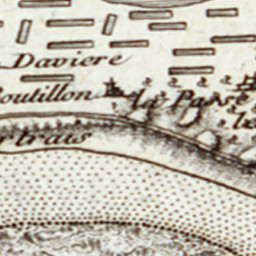 Daviere
outillon
la Passe
le
rtrais